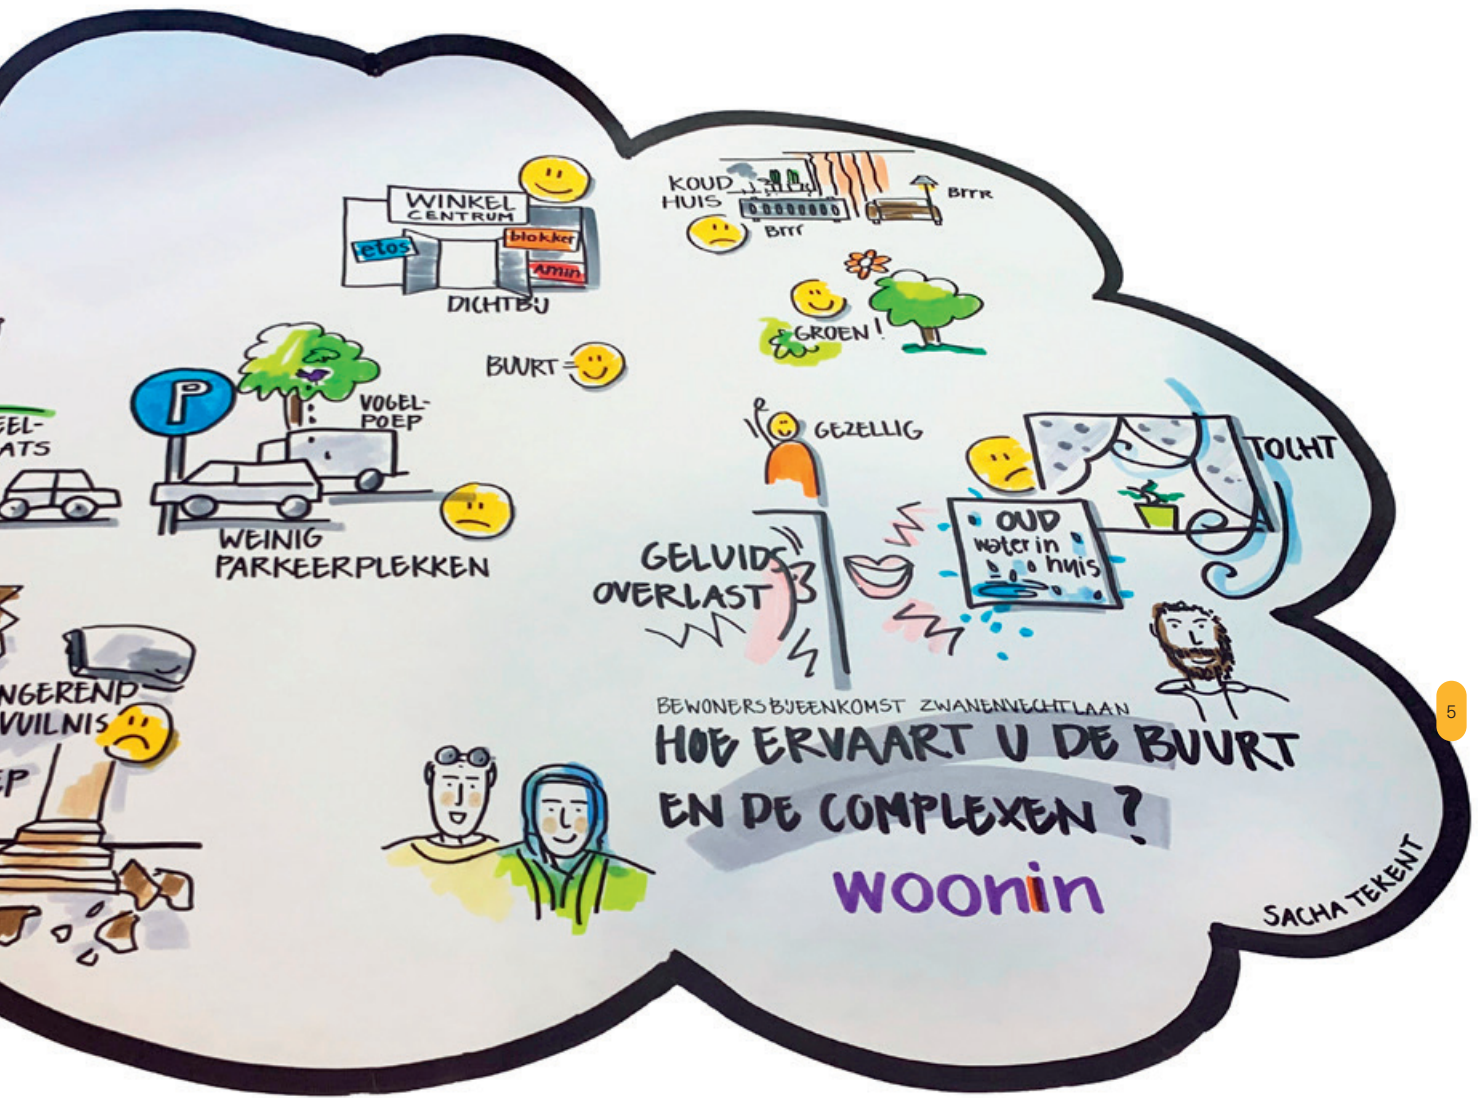 WINKEL
CENTRUM
etos
blokker
Amin
DICHTBIJ
KOUD
HUIS
Brrr
Brrr
GROEN!
BUURT=
P
VOGEL-
POEP
EEL-
ATS
WEINIG
PARKEERPLEKKEN
GEZELLIG
TOCHT
OUD
water in
huis
GELUIDS
OVERLAST
NGEREND
VUILNIS
EP
BEWONERSBIJEENKOMST ZWANENVECHTLAAN
HOE ERVAART U DE BUURT
EN DE COMPLEXEN?
woonin
SACHA TEKENT
5